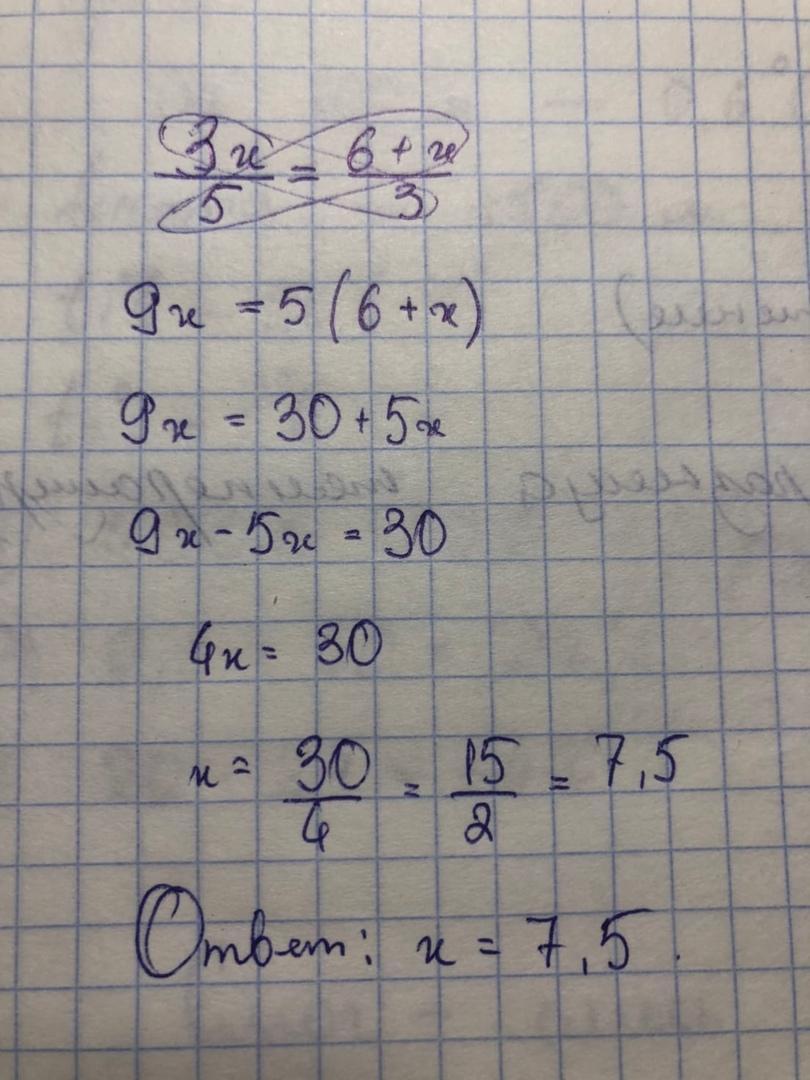 3x/5 = 6+x/3
9x = 5(6+x)
9x = 30+5x
9x-5x = 30
4x = 30
x = 30/4 = 15/2 = 7,5
Ответ: x = 7,5.